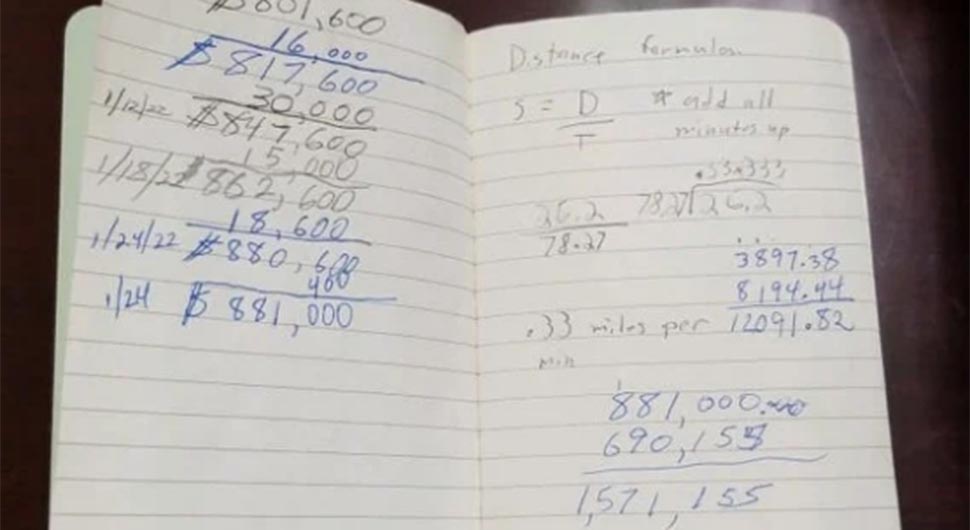 $801,600
16,000
$817,600
30,000
1/12/22 $847,600
15,000
1/18/22 $862,600
18,600
1/24/22 $880,600
400
1/24 $881,000
Distance formulas
S = D
T
* add all
minutes up
.33.333
26.2
78.27
78.27 26.2
3897.38
8194.44
12091.82
.33 miles per
min
1
881,000.00
690,155
1,571,155